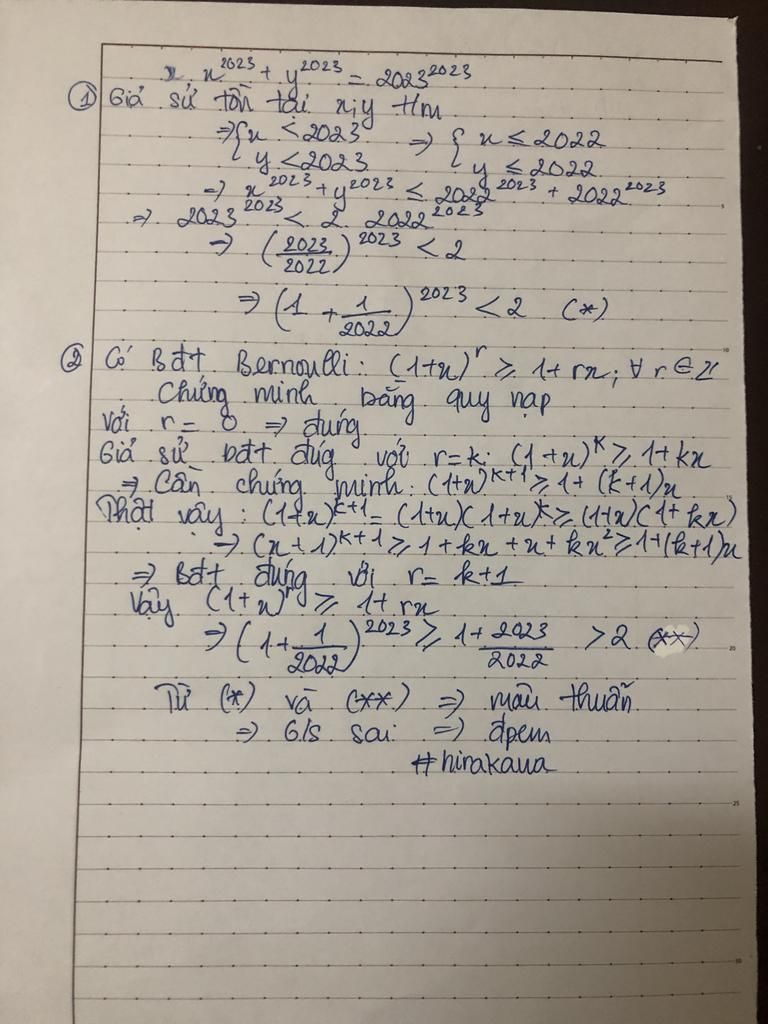 x^2023 + y^2023 = 2023^2023
① Giả sử tồn tại x,y t/m
⇒ { x < 2023 ⇒ { x ≤ 2022
y < 2023 y ≤ 2022
⇒ x^2023 + y^2023 ≤ 2022^2023 + 2022^2023
⇒ 2023^2023 < 2. 2022^2023
⇒ (2023/2022)^2023 < 2
⇒ (1 + 1/2022)^2023 < 2 (*)
② Có Bđt Bernoulli: (1+x)^r ≥ 1+rx; ∀ r ∈ Z
Chứng minh bằng quy nạp
Với r = 0 ⇒ đúng
Giả sử bđt đúg với r=k: (1+x)^k ≥ 1+kx
⇒ Cần chứng minh: (1+x)^k+1 ≥ 1+(k+1)x
Thật vậy: (1+x)^k+1 = (1+x)(1+x)^k ≥ (1+x)(1+kx)
⇒ (x+1)^k+1 ≥ 1+kx+x+kx² ≥ 1+(k+1)x
⇒ Bđt đúng với r= k+1
Vậy (1+x)^r ≥ 1+rx
⇒ (1+1/2022)^2023 ≥ 1+2023/2022 > 2 (**)
Từ (*) và (**) ⇒ mâu thuẫn
⇒ G/s sai ⇒ đpcm
#hirakawa